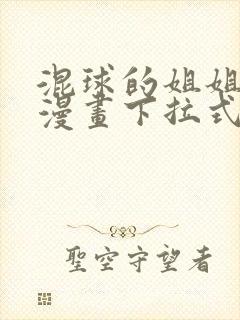 混球的姐姐
漫畫下拉式
聖空守望者